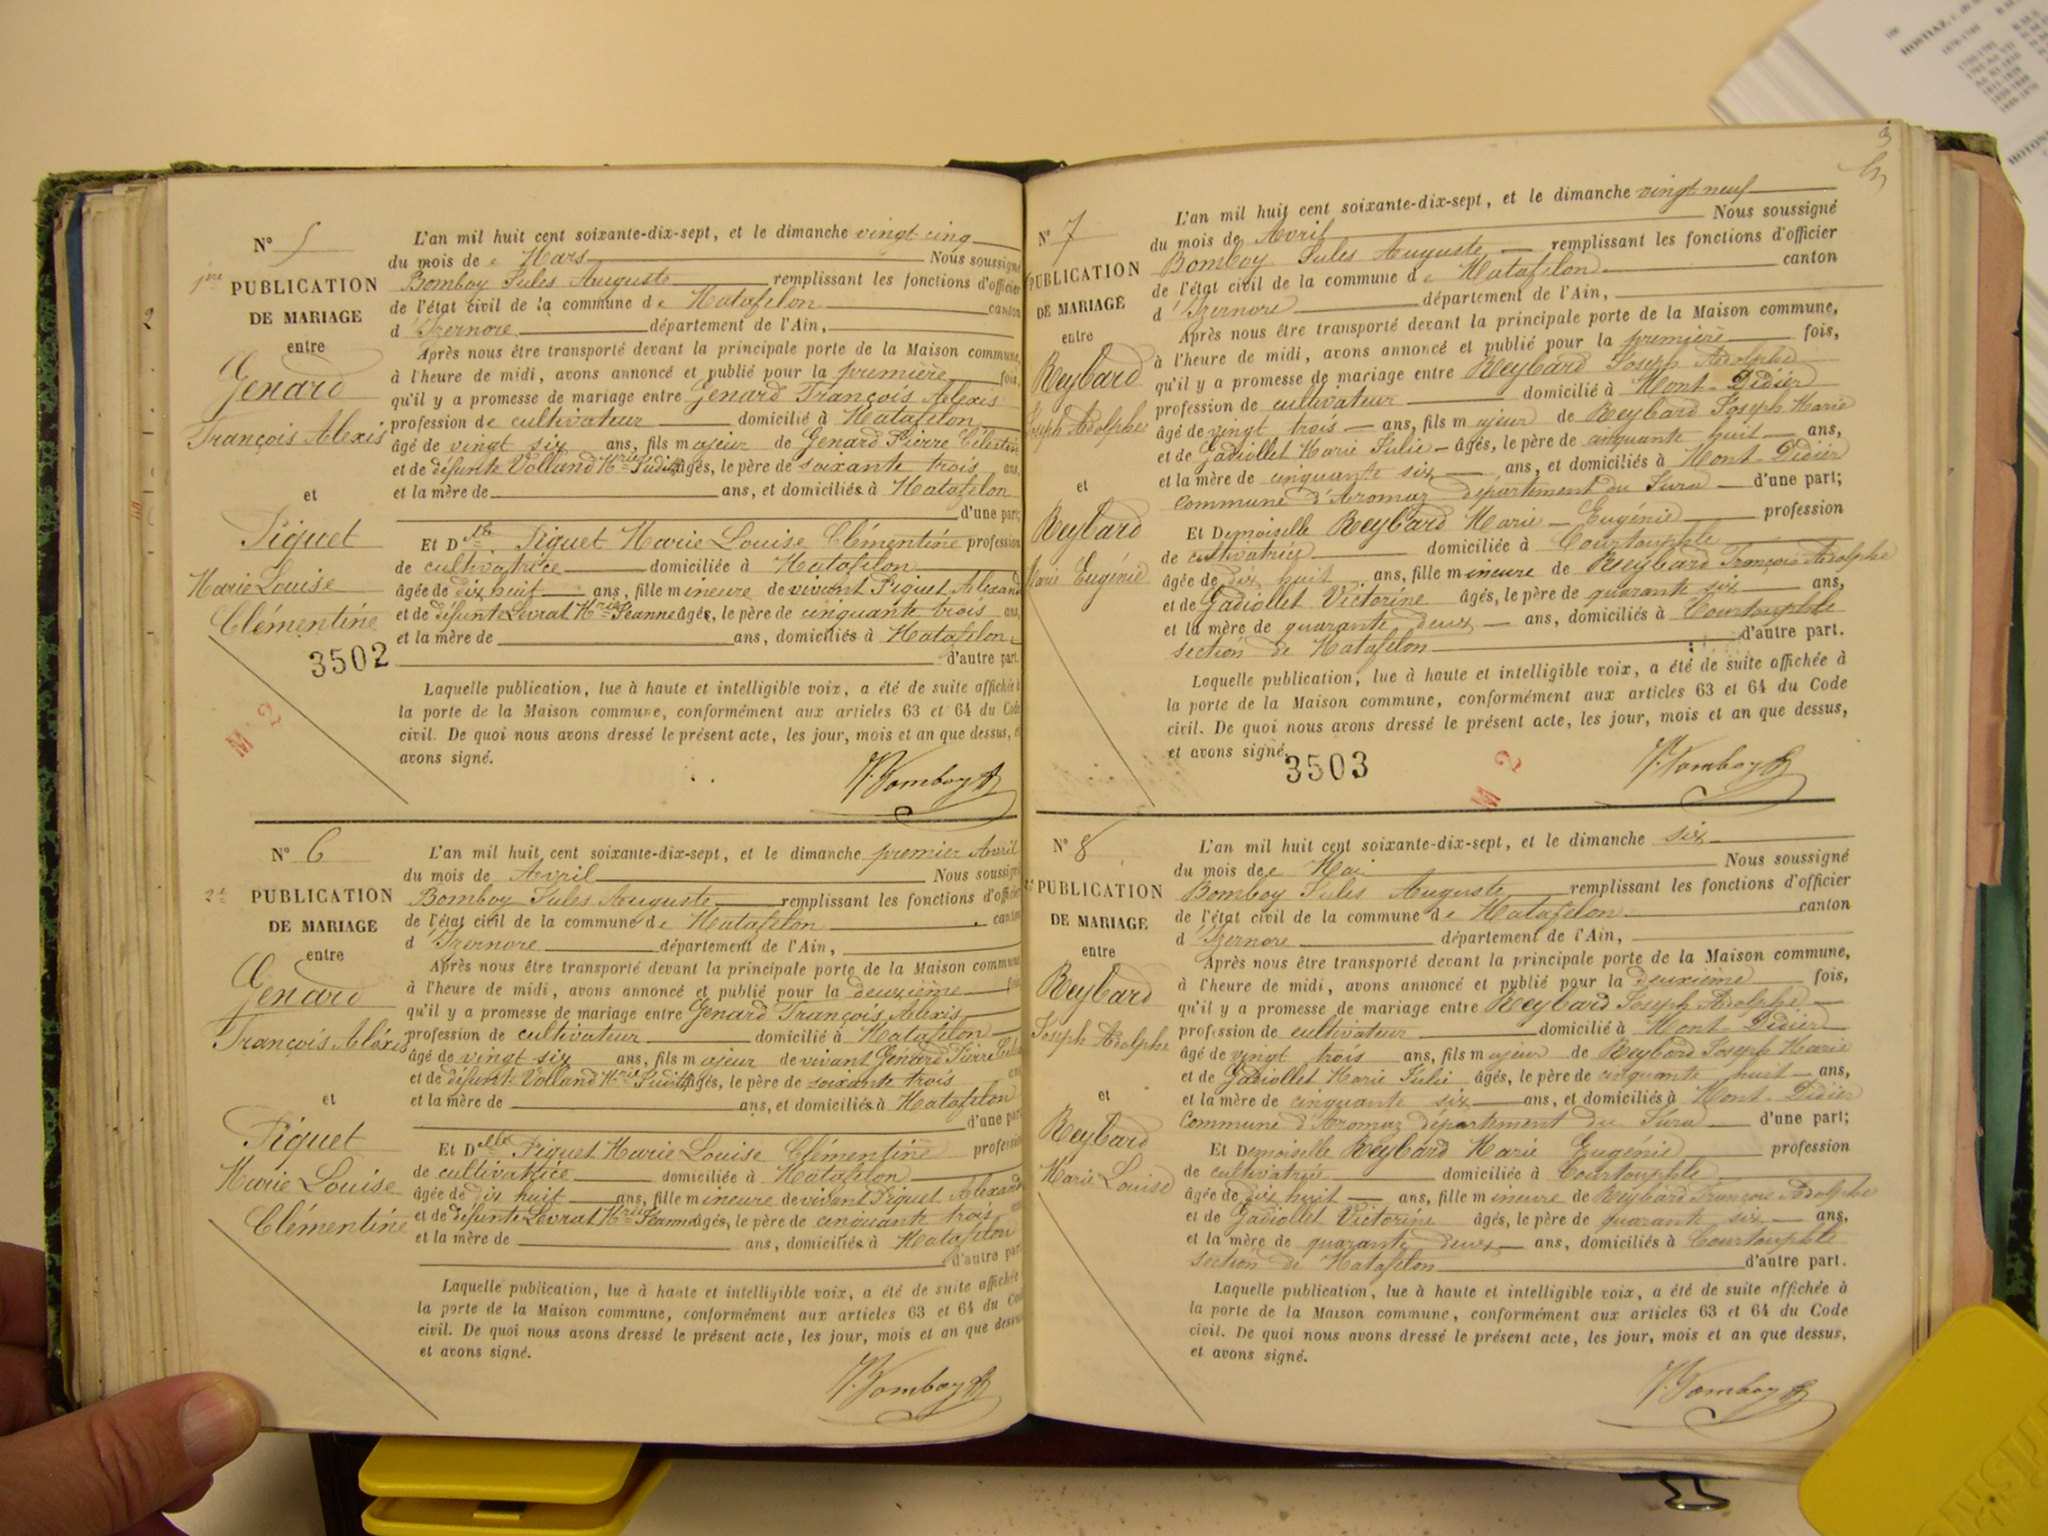 N° 5
1re PUBLICATION
DE MARIAGE
entre
Genard
François Alexis
et
Piguet
Marie Louise
Clémentine
3502
M 2
L'an mil huit cent soixante-dix-sept, et le dimanche vingt cinq
du mois de Mars Nous soussigné
Bomboy Jules Auguste remplissant les fonctions d'officier
de l'état civil de la commune de Matafelon canton
d'Izernore département de l'Ain,
Après nous être transporté devant la principale porte de la Maison commune,
à l'heure de midi, avons annoncé et publié pour la première fois,
qu'il y a promesse de mariage entre Genard François Alexis
profession de cultivateur domicilié à Matafelon
âgé de vingt six ans, fils majeur de Genard Pierre Célestin
et de défunte Volland Mrie Judith âgés, le père de soixante trois ans,
et la mère de ans, et domiciliés à Matafelon
d'une part;
Et Dlle Piguet Marie Louise Clémentine profession
de cultivatrice domiciliée à Matafelon
âgée de dix huit ans, fille mineure de vivant Piguet Alexand
et de défunte Levrat Mrie Jeanne âgés, le père de cinquante trois ans,
et la mère de ans, domiciliés à Matafelon
d'autre part.
Laquelle publication, lue à haute et intelligible voix, a été de suite affichée à
la porte de la Maison commune, conformément aux articles 63 et 64 du Code
civil. De quoi nous avons dressé le présent acte, les jour, mois et an que dessus, et
avons signé.
Bomboy
N° 6
2e PUBLICATION
DE MARIAGE
entre
Genard
François Aléxis
et
Piguet
Marie Louise
Clémentine
L'an mil huit cent soixante-dix-sept, et le dimanche premier Avril
du mois de Avril Nous soussigné
Bomboy Jules Auguste remplissant les fonctions d'officier
de l'état civil de la commune de Matafelon canton
d'Izernore département de l'Ain,
Après nous être transporté devant la principale porte de la Maison commune
à l'heure de midi, avons annoncé et publié pour la deuxième fois
qu'il y a promesse de mariage entre Genard François Alexis
profession de cultivateur domicilié à Matafelon
âgé de vingt six ans, fils majeur de vivant Génard Pierre Célest
et de défunte Volland Mrie Judith âgés, le père de soixante trois ans
et la mère de ans, et domiciliés à Matafelon
d'une part
Et Delle Piguet Marie Louise Clémentine profession
de cultivatrice domiciliée à Matafelon
âgée de dix huit ans, fille mineure de vivant Piguet Alexand
et de défunte Levrat Mrie Jeanne âgés, le père de cinquante trois
et la mère de ans, domiciliés à Matafelon
d'autre part
Laquelle publication, lue à haute et intelligible voix, a été de suite affichée
la porte de la Maison commune, conformément aux articles 63 et 64 du Code
civil. De quoi nous avons dressé le présent acte, les jour, mois et an que dessus
et avons signé.
Bomboy
3
N° 7
PUBLICATION
DE MARIAGE
entre
Reybard
Joseph Adolphe
et
Reybard
Marie Eugénie
L'an mil huit cent soixante-dix-sept, et le dimanche vingt neuf
du mois de Avril Nous soussigné
Bomboy Jules Auguste remplissant les fonctions d'officier
de l'état civil de la commune de Matafelon canton
d'Izernore département de l'Ain,
Après nous être transporté devant la principale porte de la Maison commune,
à l'heure de midi, avons annoncé et publié pour la première fois,
qu'il y a promesse de mariage entre Reybard Joseph Adolphe
profession de cultivateur domicilié à Mont-Didier
âgé de vingt trois ans, fils majeur de Reybard Joseph Marie
et de Gadiollet Marie Julie âgés, le père de cinquante huit ans,
et la mère de cinquante six ans, et domiciliés à Mont-Didier
commune d'Aromaz département du Jura d'une part;
Et Demoiselle Reybard Marie Eugénie profession
de cultivatrice domiciliée à Courtouphle
âgée de dix huit ans, fille mineure de Reybard François Adolphe
et de Gadiollet Victorine âgés, le père de quarante six ans,
et la mère de quarante deux ans, domiciliés à Courtouphle
section de Matafelon d'autre part.
Laquelle publication, lue à haute et intelligible voix, a été de suite affichée à
la porte de la Maison commune, conformément aux articles 63 et 64 du Code
civil. De quoi nous avons dressé le présent acte, les jour, mois et an que dessus,
et avons signé.
3503
M 2
Bomboy
N° 8
PUBLICATION
DE MARIAGE
entre
Reybard
Joseph Adolphe
et
Reybard
Marie Louise
L'an mil huit cent soixante-dix-sept, et le dimanche six
du mois de Mai Nous soussigné
Bomboy Jules Auguste remplissant les fonctions d'officier
de l'état civil de la commune de Matafelon canton
d'Izernore département de l'Ain,
Après nous être transporté devant la principale porte de la Maison commune,
à l'heure de midi, avons annoncé et publié pour la deuxième fois,
qu'il y a promesse de mariage entre Reybard Joseph Adolphe
profession de cultivateur domicilié à Mont-Didier
âgé de vingt trois ans, fils majeur de Reybard Joseph Marie
et de Gadiollet Marie Julie âgés, le père de cinquante huit ans,
et la mère de cinquante six ans, et domiciliés à Mont-Didier
Commune d'Aromaz département du Jura d'une part;
Et Demoiselle Reybard Marie Eugénie profession
de cultivatrice domiciliée à Courtouphle
âgée de dix huit ans, fille mineure de Reybard François Adolphe
et de Gadiollet Victorine âgés, le père de quarante six ans,
et la mère de quarante deux ans, domiciliés à Courtouphle
section de Matafelon d'autre part.
Laquelle publication, lue à haute et intelligible voix, a été de suite affichée à
la porte de la Maison commune, conformément aux articles 63 et 64 du Code
civil. De quoi nous avons dressé le présent acte, les jour, mois et an que dessus,
et avons signé.
Bomboy